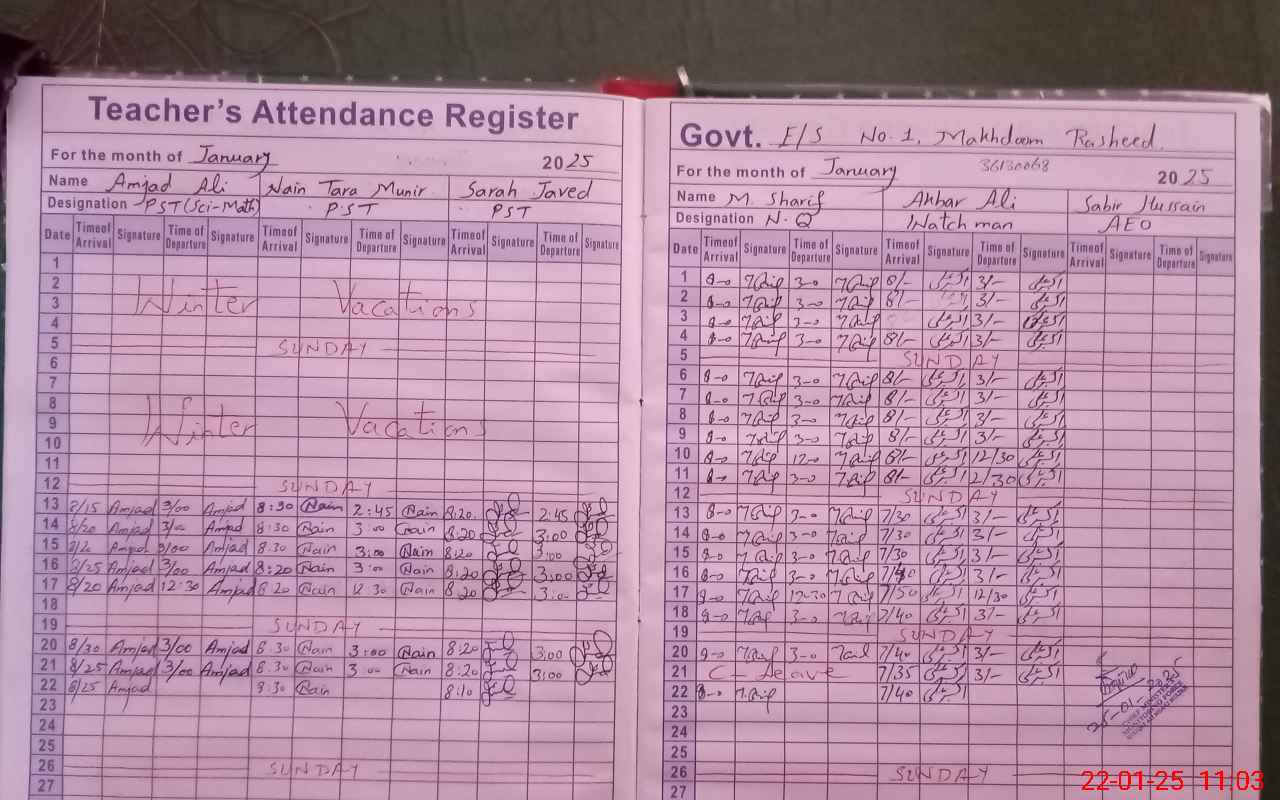 Teacher's Attendance Register
For the month of January 2025
Name Amjad Ali Nain Tara Munir Sarah Javed
Designation PST (Sci-Math) PST PST
Date Time of Arrival Signature Time of Departure Signature Time of Arrival Signature Time of Departure Signature Time of Arrival Signature Time of Departure Signature
1
2 Winter Vacations
3
4
5 SUNDAY
6
7
8
9 Winter Vacations
10
11
12 SUNDAY
13 8/15 Amjad 3/00 Amjad 8:30 Nain 2:45 Nain 8:20 2:45
14 8/20 Amjad 3/00 Amjad 8:30 Nain 3:00 Nain 8:20 3:00
15 8/20 Amjad 3/00 Amjad 8:30 Nain 3:00 Nain 8:20 3:00
16 8/25 Amjad 3/00 Amjad 8:20 Nain 3:00 Nain 8:20 3:00
17 8/20 Amjad 12:30 Amjad 8:20 Nain 12:30 Nain 8:20 3:00
18
19 SUNDAY
20 8/30 Amjad 3/00 Amjad 8:30 Nain 3:00 Nain 8:20 3:00
21 8/25 Amjad 3/00 Amjad 8:30 Nain 3:00 Nain 8:20 3:00
22 8/25 Amjad 8:30 Nain 8:10
23
24
25
26 SUNDAY
27
Govt. E/S No. 1, Makhdoom Rasheed.
36130068
For the month of January 2025
Name M. Sharif Akbar Ali Sabir Hussain
Designation N.Q Watch man AEO
Date Time of Arrival Signature Time of Departure Signature Time of Arrival Signature Time of Departure Signature Time of Arrival Signature Time of Departure Signature
1 8-0 3-0 8/- اکبر علی 3/- اکبر علی
2 8-0 3-0 8/- 3/- اکبر علی
3 8-0 3-0 اکبر علی 3/- اکبر علی
4 8-0 3-0 8/- اکبر علی 3/- اکبر علی
5 SUNDAY
6 8-0 3-0 8/- اکبر علی 3/- اکبر علی
7 8-0 3-0 8/- اکبر علی 3/- اکبر علی
8 8-0 3-0 8/- اکبر علی 3/- اکبر علی
9 8-0 3-0 8/- اکبر علی 3/- اکبر علی
10 8-0 12-0 8/- اکبر علی 12/30 اکبر علی
11 8-0 3-0 8/- اکبر علی 12/30 اکبر علی
12 SUNDAY
13 8-0 3-0 7/30 اکبر علی 3/- اکبر علی
14 8-0 3-0 7/30 اکبر علی 3/- اکبر علی
15 8-0 3-0 7/30 اکبر علی 3/- اکبر علی
16 8-0 3-0 7/40 اکبر علی 3/- اکبر علی
17 8-0 12-30 7/50 اکبر علی 12/30 اکبر علی
18 8-0 3-0 7/40 اکبر علی 3/- اکبر علی
19 SUNDAY
20 8-0 3-0 7/40 اکبر علی 3/- اکبر علی
21 C-Leave 7/35 اکبر علی 3/- اکبر علی
22 8-0 7/40 اکبر علی
23
24
25
26 SUNDAY
27
CHIEF MINISTER'S
MONITORING FORCE
22-01-25 11:03